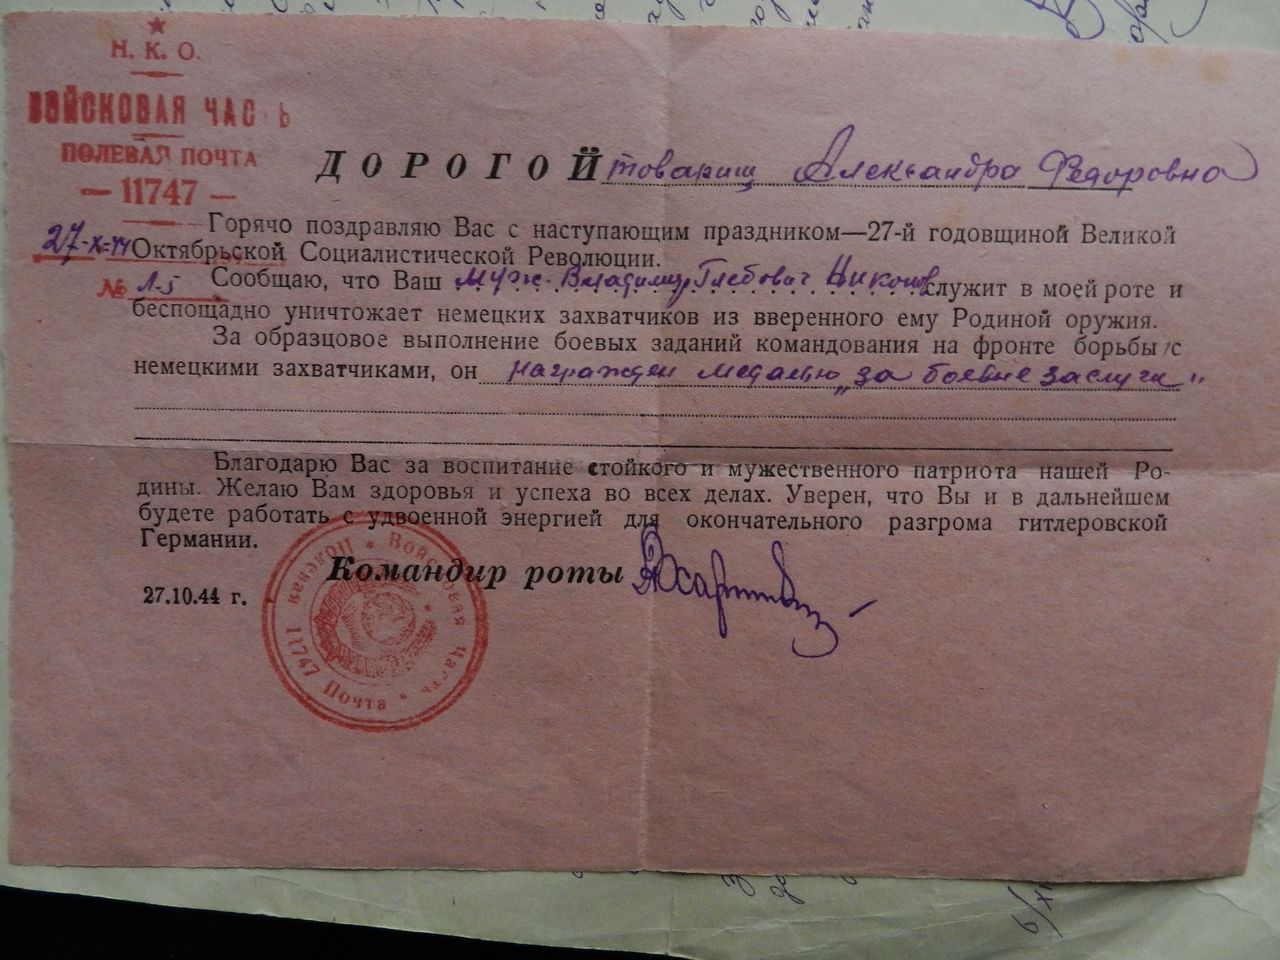 Н. К. О.
ВОЙСКОВАЯ ЧАСТЬ
ПОЛЕВАЯ ПОЧТА
— 11747 —
27-X-44
№ 1-5
ДОРОГОЙ товарищ Александра Федоровна
Горячо поздравляю Вас с наступающим праздником—27-й годовщиной Великой
Октябрьской Социалистической Революции.
Сообщаю, что Ваш муж Владимир Глебович Никонов служит в моей роте и
беспощадно уничтожает немецких захватчиков из вверенного ему Родиной оружия.
За образцовое выполнение боевых заданий командования на фронте борьбы с
немецкими захватчиками, он награжден медалью „за боевые заслуги"
Благодарю Вас за воспитание стойкого и мужественного патриота нашей Ро-
дины. Желаю Вам здоровья и успеха во всех делах. Уверен, что Вы и в дальнейшем
будете работать с удвоенной энергией для окончательного разгрома гитлеровской
Германии.
Командир роты
27.10.44 г.
Войсковая Часть * 11747 Почта * Полевая